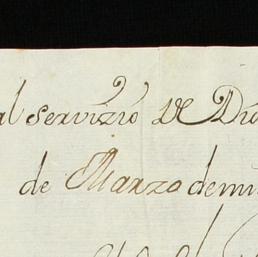 al servizio de Dio
de Marzo demil